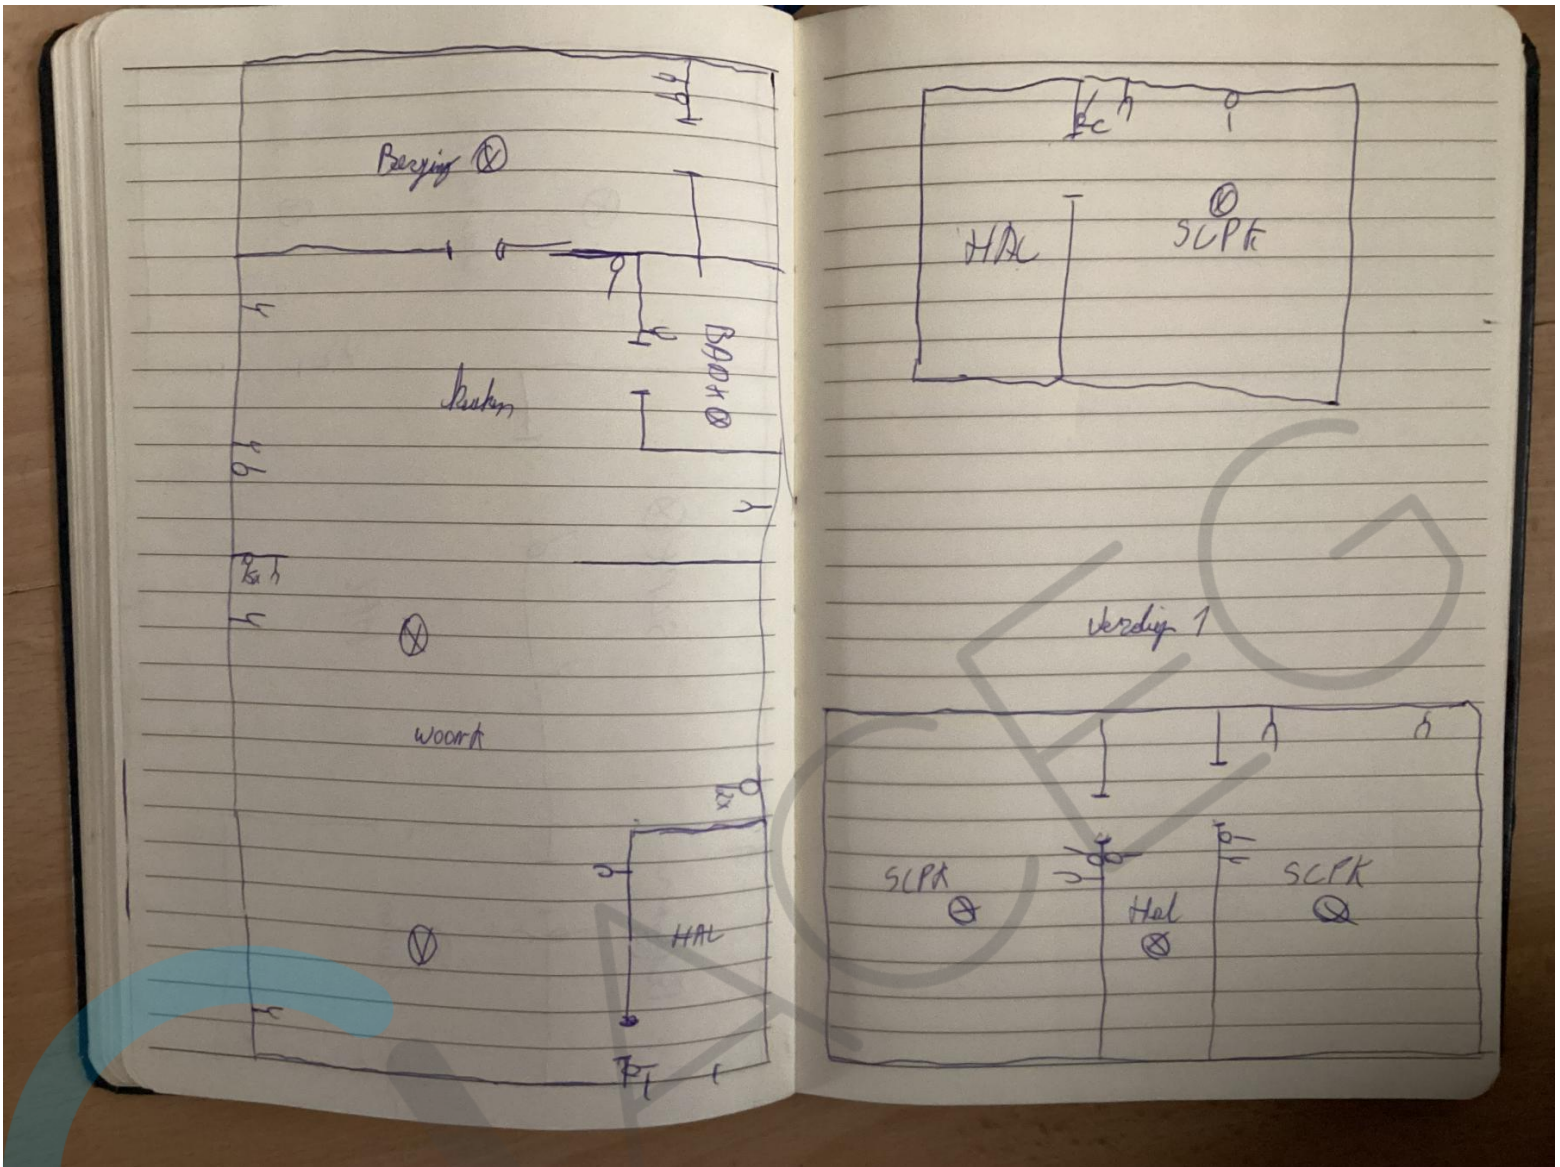 Berging
BADK
woonk
HAL
HAL
SLPK
verdiep 1
SLPK
Hal
SLPK
ACEG